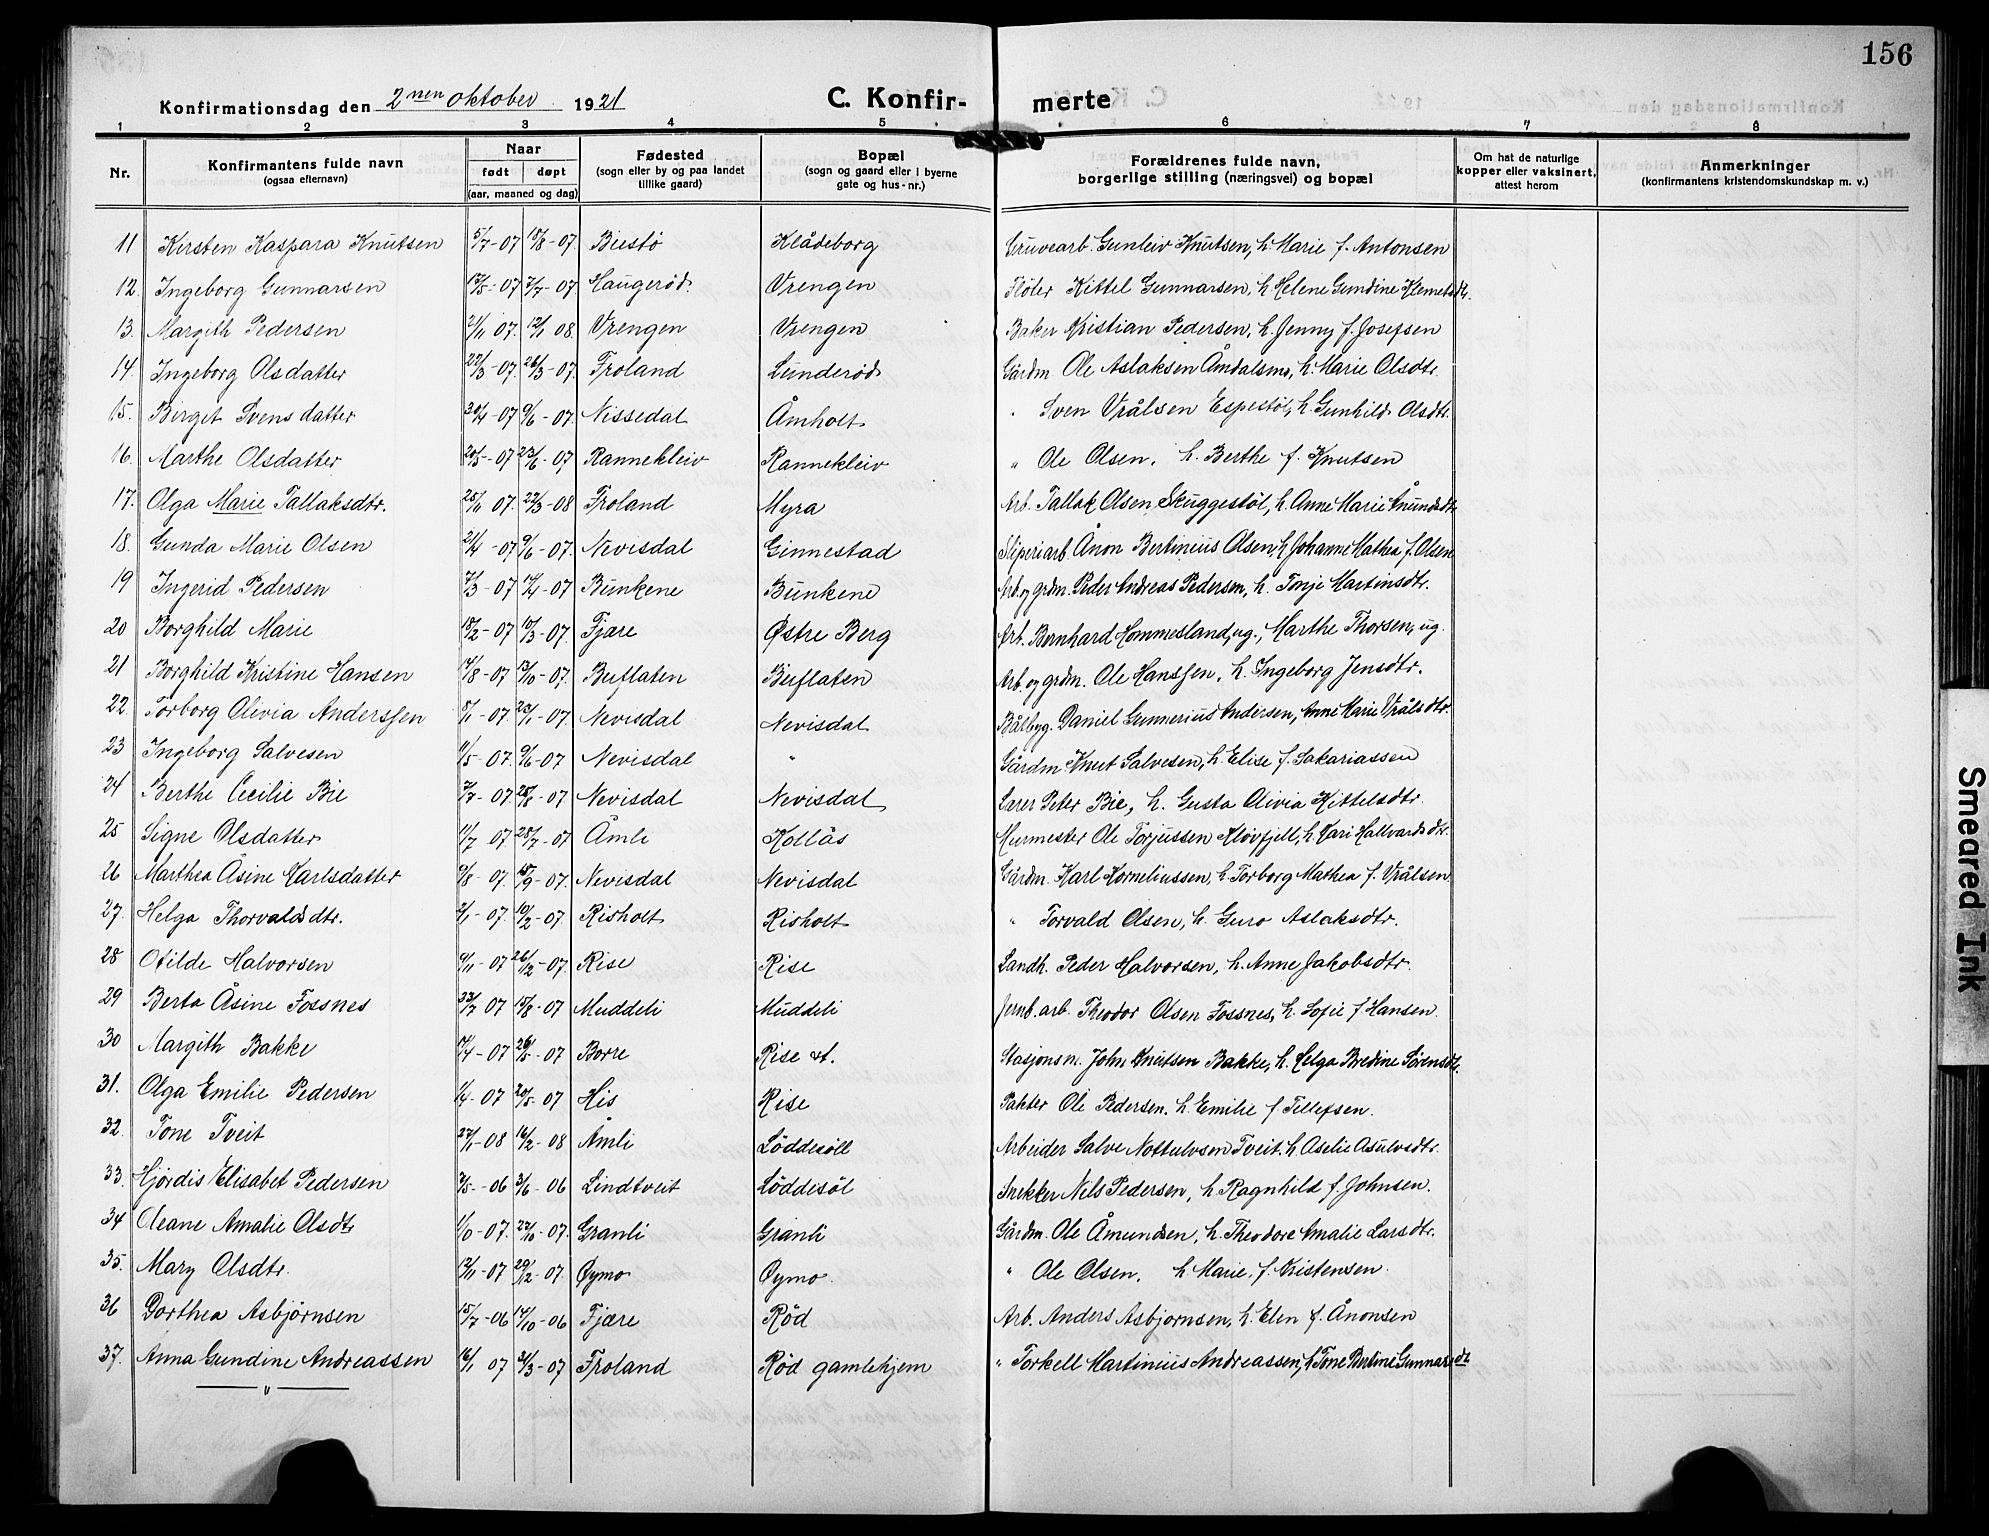 156
Konfirmationsdag den 2nen oktober 1921 C. Konfir- merte
1 2 3 4 5 6 7 8
Nr. Konfirmantens fulde navn (ogsaa efternavn) Naar født døpt (aar, maaned og dag) Fødested (sogn eller by og paa landet tillike gaard) Bopæl (sogn og gaard eller i byerne gate og hus-nr.) Forældrenes fulde navn, borgerlige stilling (næringsvei) og bopæl Om hat de naturlige kopper eller vaksinert, attest herom Anmerkninger (konfirmantens kristendomskundskap m. v.)
11 Kirsten Kaspara Knutsen 5/7-07 18/8-07. Buestö Klådeborg Gruvearb. Gunleiv Knutsen, h. Marie f. Antonsen
12. Ingeborg Gunnarsen 17/5-07 7/7-07 Haugeröd. Vrengen Fløter Kittel Gunnarsen, h. Helene Gundine Klemetsdtr.
13. Margith Pedersen 2/11 07. 12/1 08. Vrengen Vrengen Baker Kristian Pedersen, h. Jenny f. Josefsen
14. Ingeborg Olsdatter 22/3-07. 26/3-07. Froland Lunderöd Gårdm. Ole Aslaksen Åmdalsmo, h. Marie Olsdtr.
15. Birget Svensdatter 30/4-07 9/6-07. Nissedal Åmholt " Sven Vrålsen Espestöl, h. Gunhild Olsdtr.
16. Marthe Olsdatter 20/5-07 23/6-07 Rannekleiv Rannekleiv " Ole Olsen. h. Berthe f. Knutsen
17. Olga Marie Tallaksdtr. 25/11 07. 22/3-08 Froland Myra Arb. Tallak Olsen Skuggestöl, h. Anne Marie Ånundsdtr
18. Gunda Marie Olsen 21/4-07 9/6-07. Nevisdal Ginnestad Sliperiarb. Ånon Bertinius Olsen, h. Johanne Mathea f. Olsen
19 Ingerid Pedersen 7/3-07 14/4-07 Bunkene Bunkene Arb. og grdm. Peder Andreas Pedersen, h. Tonje Martinsdtr.
20 Borghild Marie 18/2-07 17/3-07. Fjære Østre Berg Arb. Bernhard Hommesland, ug., Marthe Thorsen, ug.
21 Borghild Kristine Hansen 14/8-07 13/10-07. Buflaten Buflaten Arb. og grdm. Ole Hanssen, h. Ingeborg Jensdtr.
22. Torborg Olivia Anderssen Nevisdal Nevisdal Båtbyg. Daniel Gunnerius Andersen, Anne Marie Vrålsdtr.
23 Ingeborg Salvesen 11/5-07. 9/6-07 Nevisdal " Gårdm. Knut Salvesen, h. Elise f. Sakariassen
24 Berthe Cecilie Bie 7/7-07 25/8-07 Nevisdal Nevisdal Lærer Peter Bie, h. Gusta Olivia Kittelsdtr.
25 Signe Olsdatter 11/7 07 28/7-07 Åmli Kollås Murmester Ole Torjussen Klövfjell, h. Kari Hallvardsdtr.
26 Marthea Åsine Karlsdatter 9/8-07. 15/9-07. Nevisdal Nevisdal Gårdm. Karl Korneliussen, h. Torborg Mathea f. Vrålsen.
27. Helga Thorvaldsdtr. 2/1-07. 10/2-07. Risholt Risholt " Torvald Olsen, h. Guro Aslaksdtr.
28 Otilde Halvorsen 9/11-07 26/12-07. Rise Rise Landh. Peder Halvorsen, h. Anne Jakobsdtr.
29 Berta Åsine Fossnes 23/7 07 18/8-07 Muddeli Muddeli Jernb.arb. Theodor Olsen Fossnes, h. Sofie f. Hansen.
30 Margith Bakke 7/4-07 26/5-07 Borre Rise st. Stasjonsm. John Knutsen Bakke, h. Helga Bredine Sörensdtr.
31. Olga Emilie Pedersen 1/4-07 20/5-07 His Rise Pakter Ole Pedersen. h. Emilie f. Tellefsen.
32. Tone Tveit 27/1-08 16/2-08 Åmli Löddesöll Arbeider Salve Nottulvsen Tveit, h. Aselie Asulvsdtr.
33. Hjördis Elisabet Pedersen 7/5-06 3/6-06 Lindtveit Löddesöl Snekker Nels Pedersen, h. Ragnhild f. Johnsen.
34 Oleane Amalie Olsdtr 27/10-07. Granli Granli Gårdm. Ole Åmundsen, h. Theodore Amalie Larsdtr.
35. Mary Olsdtr. 13/11-07 29/12-07. Øymo Øymo. " Ole Olsen. h. Marie. f. Kristensen.
36 Dorthea Asbjörnsen 15/7-06 14/10-06 Fjære Röd Arb. Anders Asbjornsen, h. Elen f. Ånonsen
37. Anna Gundine Andreassen 16/1 07 31/3-07 Froland Röd gamlehjem " Torkell Martinius Andreassen, h. Tone Bertine Gunnarsdt
Smeared Ink